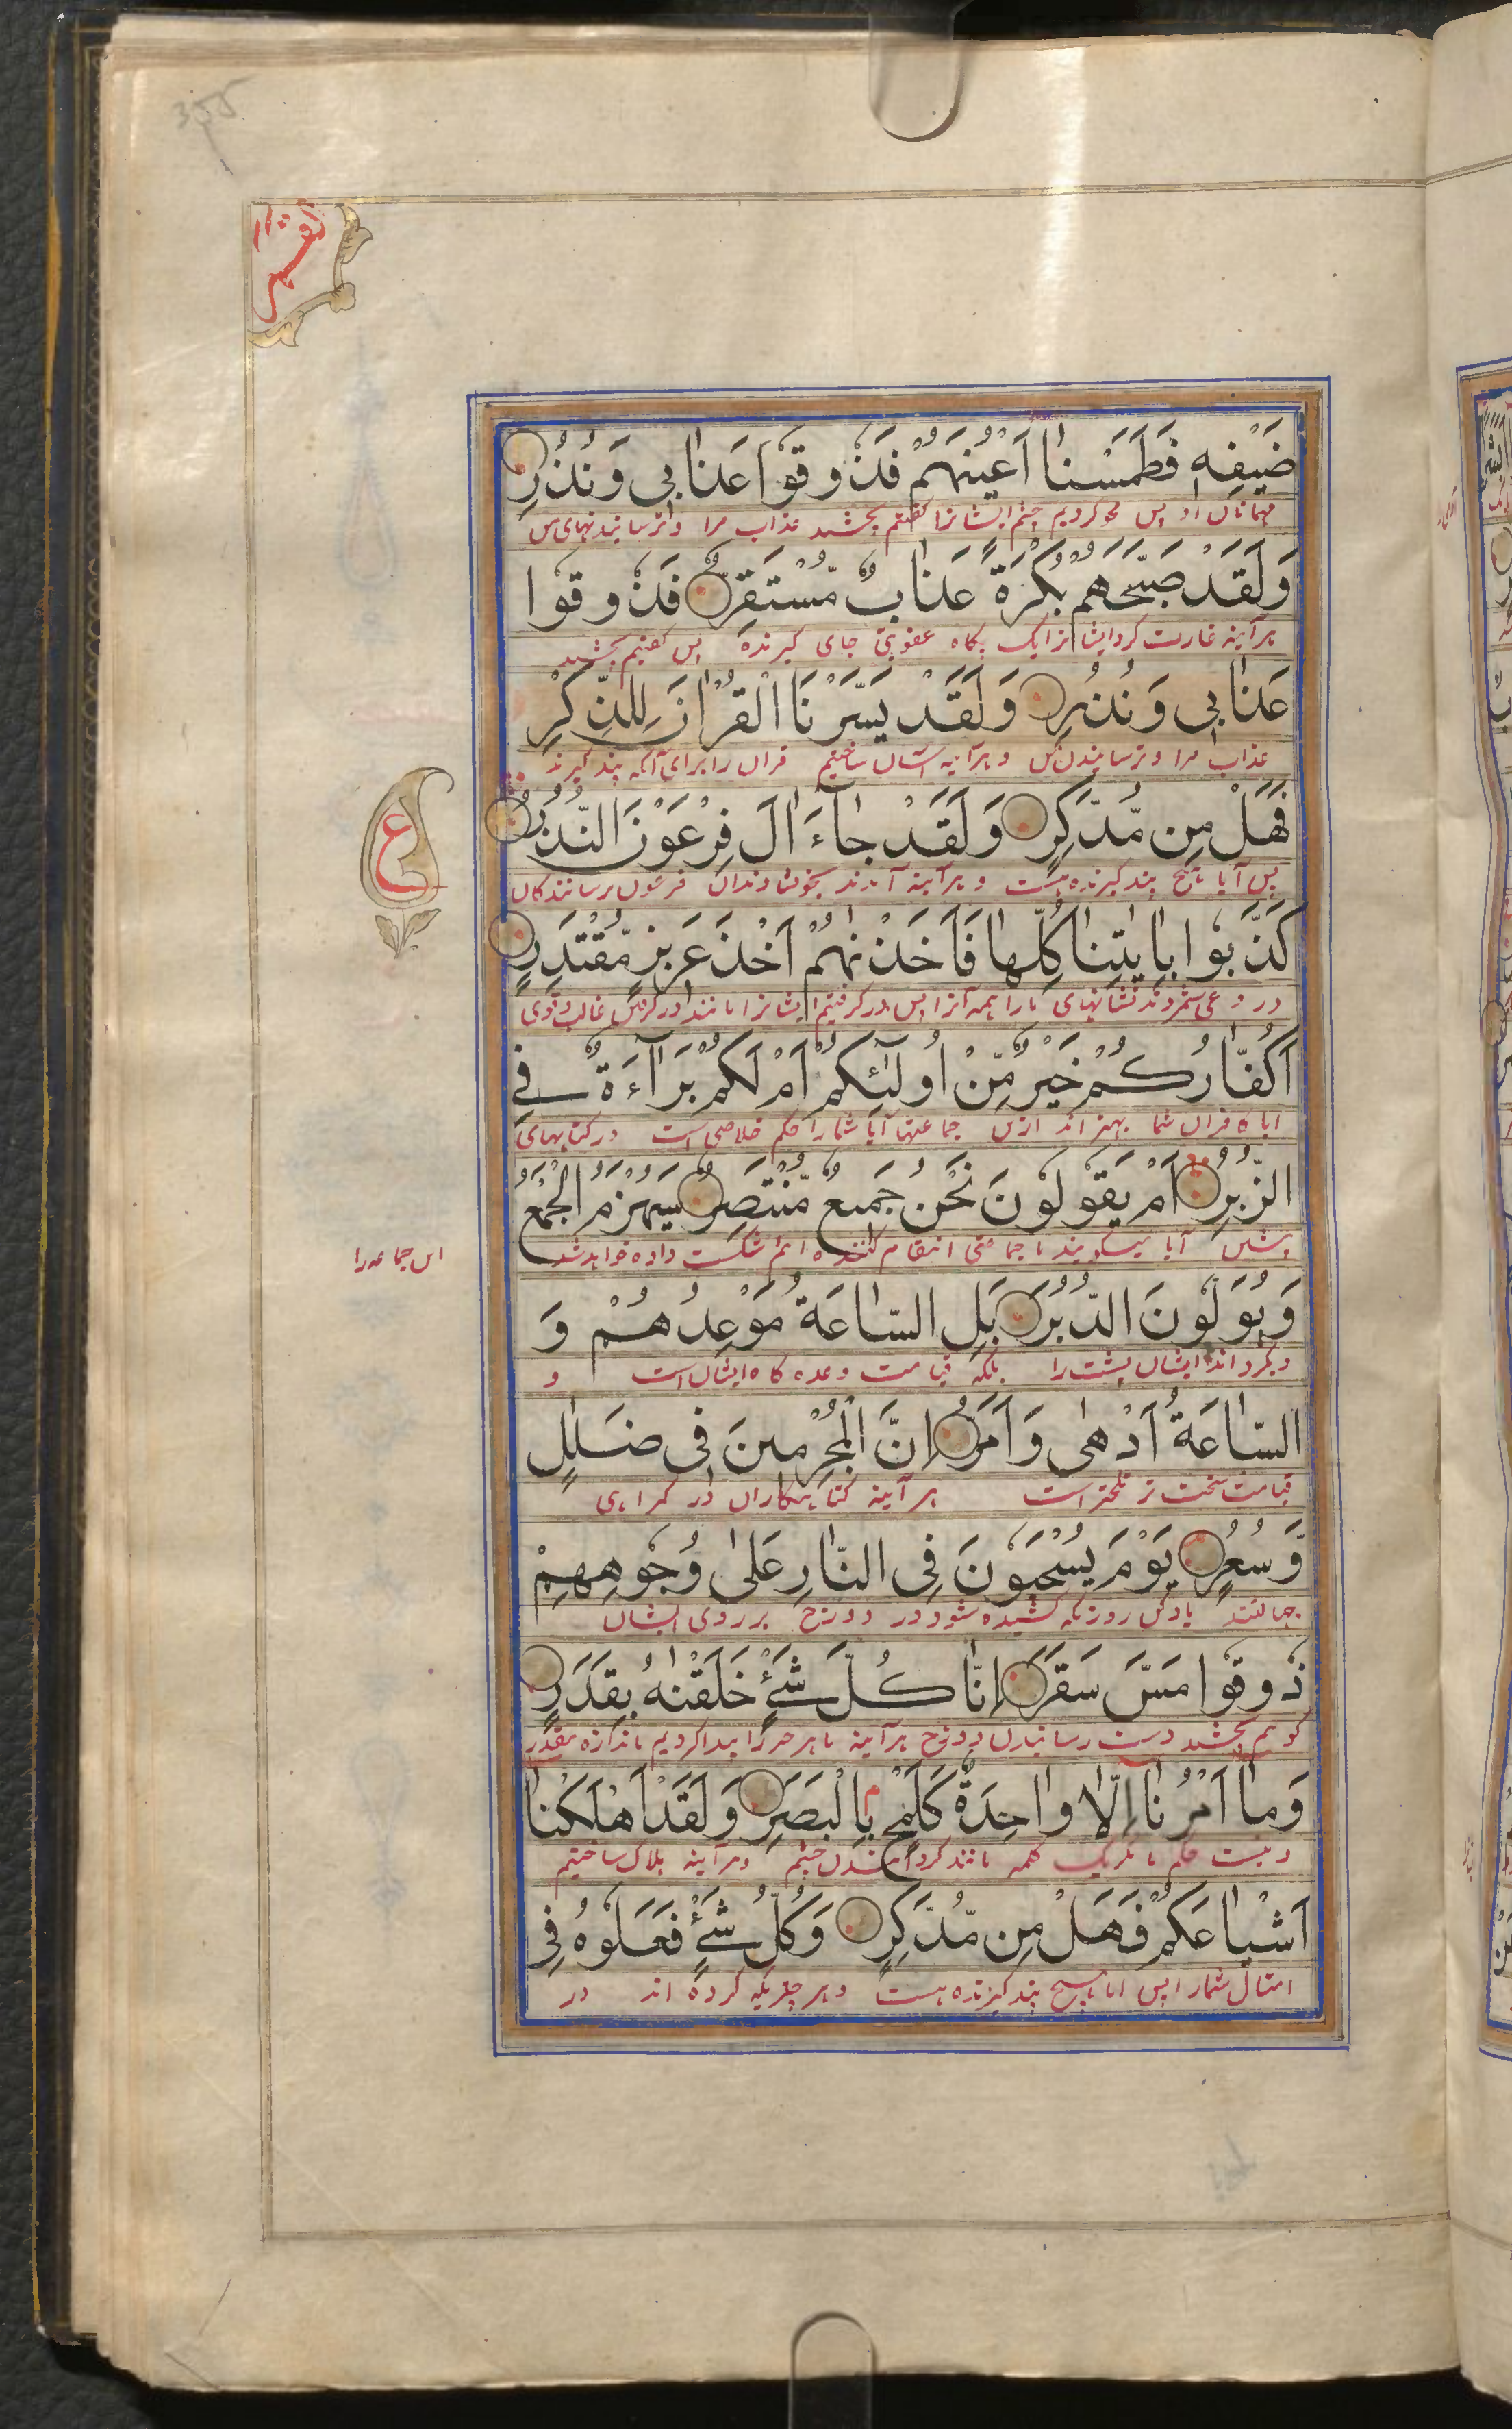 القمر
ضَيْفِهٖ فَطَمَسْنَا اَعْيُنَهُمْ فَذُوقُوا عَذَابِي وَنُذُرِ
مهمانان او پس محو کردیم چشم ایشانرا گفتیم بچشید عذاب مرا و ترسانیدنهای من
وَلَقَدْ صَبَّحَهُمْ بُكْرَةً عَذَابٌ مُّسْتَقِرٌّ فَذُوقُوا
هرآینه غارت کرد ایشانرا پگاه عقوبتی جای گیرنده پس گفتیم بچشید
عَذَابِي وَنُذُرِ وَلَقَدْ يَسَّرْنَا الْقُرْاٰنَ لِلذِّكْرِ
عذاب مرا و ترسانیدن من و هرآینه آسان ساختیم قران را برای آنکه پند گیرند
فَهَلْ مِن مُّدَّكِرٍ وَلَقَدْ جَآءَ اٰلَ فِرْعَوْنَ النُّذُرُ
ع
پس آیا هیچ پند گیرنده هست و هرآینه آمدند بخویشاوندان فرعون ترسانندگان
كَذَّبُوا بِاٰيٰتِنَا كُلِّهَا فَاَخَذْنٰهُمْ اَخْذَ عَزِيزٍ مُّقْتَدِرٍ
دروغ شمردند نشانهای ما را همه آنرا پس درگرفتیم ایشانرا مانند درگرفتن غالب قوی
اَكُفَّارُكُمْ خَيْرٌ مِّنْ اُولٰٓئِكُمْ اَمْ لَكُمْ بَرَآءَةٌ فِي
ایا کافران شما بهتراند ازین جماعتها آیا شما را حکم خلاصی است در کتابهای
الزُّبُرِ اَمْ يَقُولُونَ نَحْنُ جَمِيعٌ مُّنْتَصِرٌ سَيُهْزَمُ الْجَمْعُ
پیشین آیا میگویند ما جماعتی انتقام کننده ایم شکست داده خواهد شد
این جماعه را
وَيُوَلُّونَ الدُّبُرَ بَلِ السَّاعَةُ مَوْعِدُهُمْ وَ
و بگردانند ایشان پشت را بلکه قیامت وعده گاه ایشان است و
السَّاعَةُ اَدْهٰى وَاَمَرُّ اِنَّ الْمُجْرِمِينَ فِي ضَلٰلٍ
قیامت سخت تر تلختر است هر آینه گناهگاران در گمراهی
وَّسُعُرٍ يَوْمَ يُسْحَبُونَ فِي النَّارِ عَلٰى وُجُوهِهِمْ
یاد کن روزیکه کشیده شود در دوزخ بر روی ایشان
ذُوقُوا مَسَّ سَقَرَ اِنَّا كُلَّ شَيْءٍ خَلَقْنٰهُ بِقَدَرٍ
گوئیم بچشید دست رسانیدن دوزخ هرآینه ما هر چیز را پیدا کردیم باندازه مقدر
وَمَا اَمْرُنَا اِلَّا وَاحِدَةٌ كَلَمْحٍ بِالْبَصَرِ وَلَقَدْ اَهْلَكْنَا
و نیست حکم ما مگر یک کلمه مانند گردانیدن چشم و هرآینه هلاک ساختیم
اَشْيَاعَكُمْ فَهَلْ مِن مُّدَّكِرٍ وَكُلُّ شَيْءٍ فَعَلُوهُ فِي
امثال شما را پس ایا هیچ پند گیرنده هست و هر چیزیکه کرده اند در